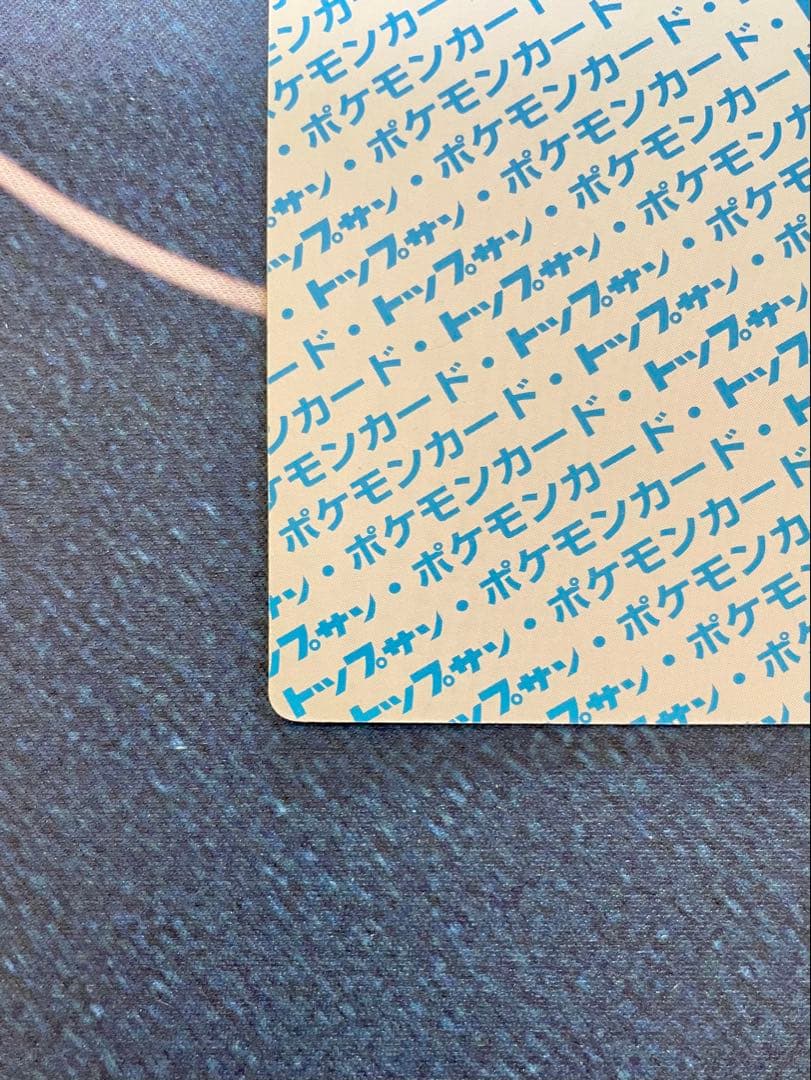 ンカー
ケモンカード
・ポケモンカード
サン・ポケモンカード・
ップサン・ポケモンカード・
・トップサン・ポケモンカード・
ード・トップサン・ポケモンカード
ンカード・トップサン・ポケモンカ
ケモンカード・トップサン・ポケモ
ポケモンカード・トップサン・ポ
・ポケモンカード・トップサン
サン・ポケモンカード・トップ
ップサン・ポケモンカード・ト
トップサン・ポケモンカード
トップサン・ポケモンカ
ップサン・ポケモ
プサン・ポ
サン